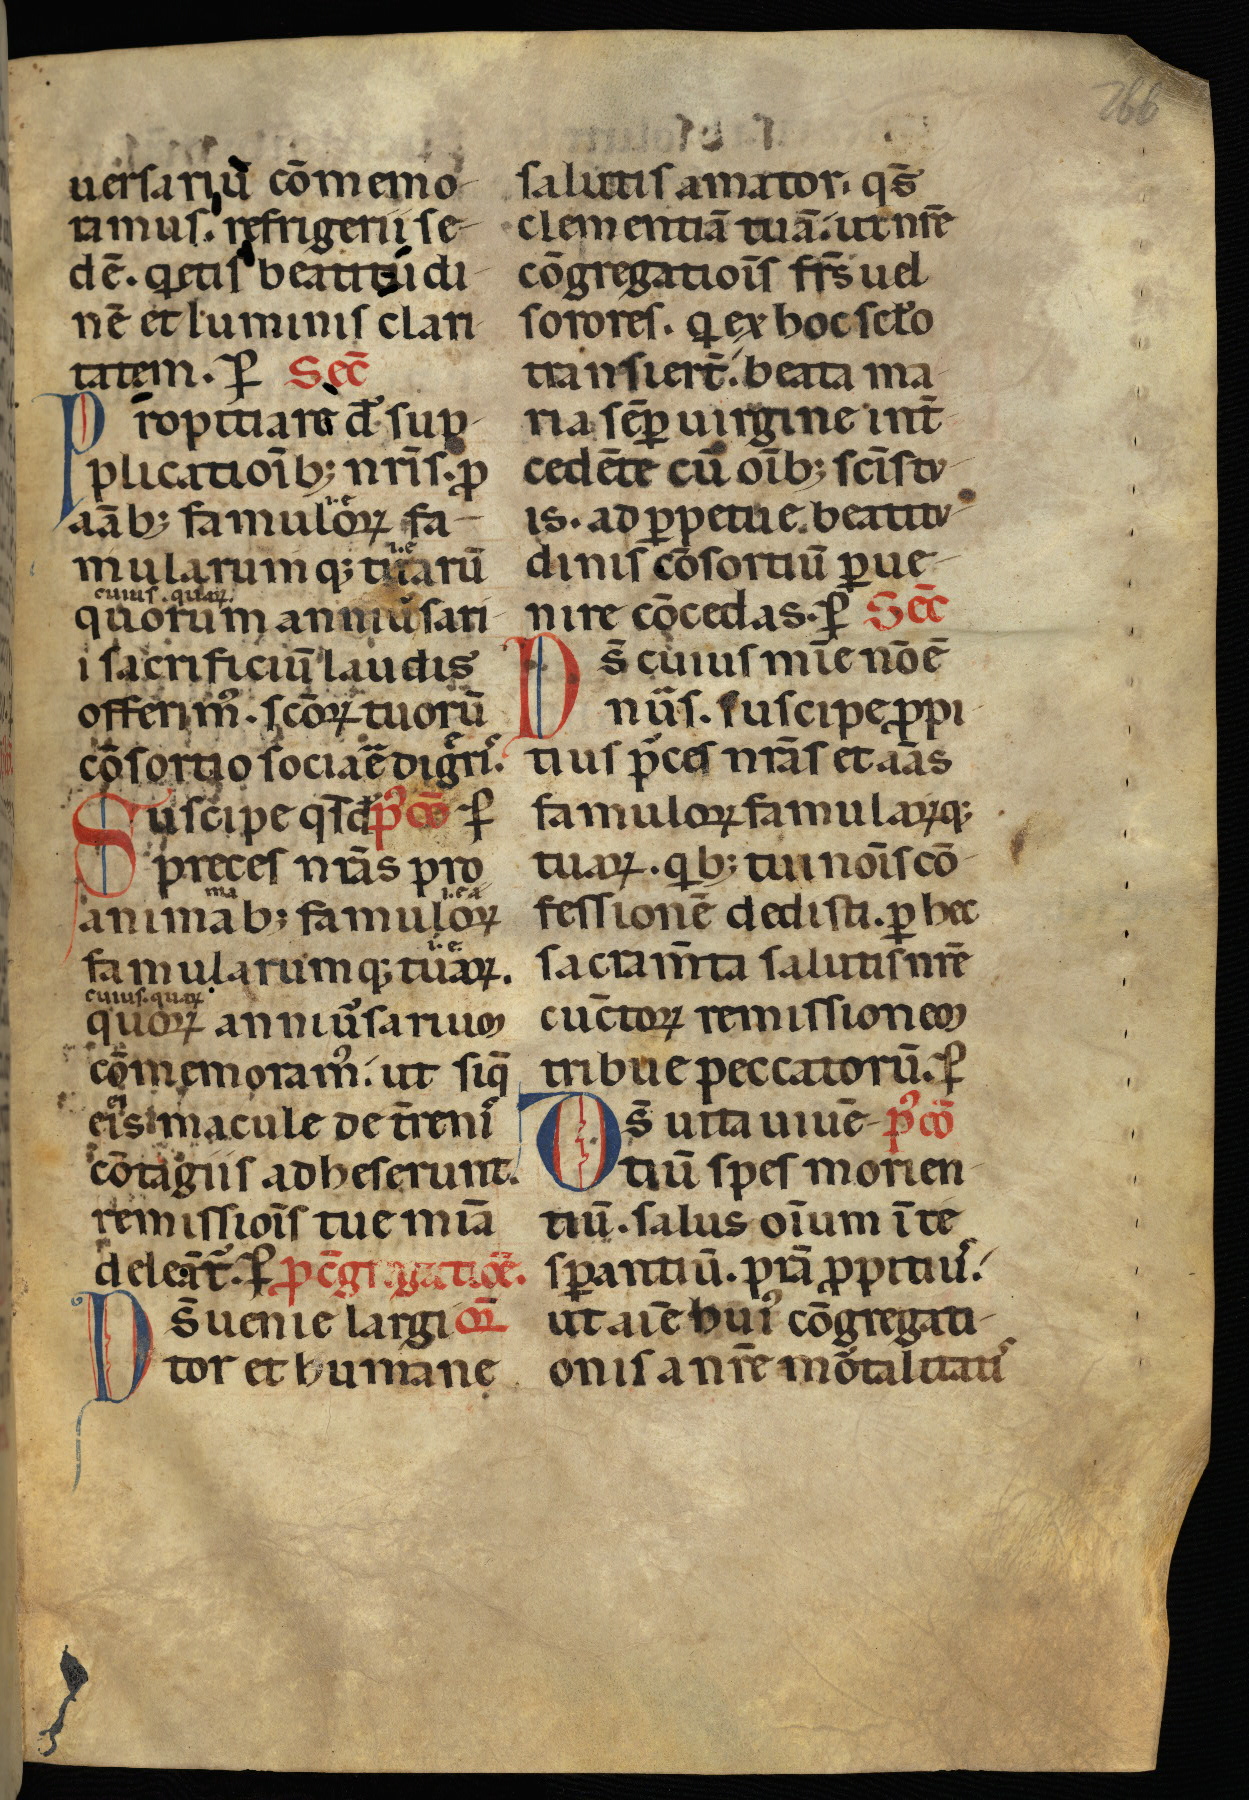 266
uersariū cōmemo
ramus. refrigerii se
dē. qetis beatitudi
nē et luminis clari
tatem. ꝑ Sec̄
Propitiare d̄ sup
plicatioīb; nrīs. ꝓ
aāb; famuloꝝ fa
mularumq; tuarū
cuius. quaꝝ.
quorum anniūsari
i sacrificiū laudis
offerim᾽. scōꝝ tuorū
cōsortio sociare digr̄i᾽.
Suscipe qs̄ d̄ p᾽cō ꝑ
preces nrās pro
animab; famuloꝝ
famularumq; tuaꝝ.
cuius. quaꝝ
quoꝝ anniūsarium
cōmemoram᾽. ut siq̄
eis macule de t̄reni᾽
cōtagiis adheserunt.
remissioīs tue mīa
deleāt᾽. ꝑ ꝓ cōgregatiōe.
Ds̄ uenie largi oꝝ̄
tor et humane
salutis amator. qs̄
clementiā tuā. ut nrē
cōgregatioīs frs̄ uel
sorores. q ex hoc sclo
transiert̄. beata ma
ria sēꝑ uirgine int̄
cedēte cū oīb; scīs tu
is. ad ꝑpetue beatitu
dinis cōsortiū ꝑue
nire cōcedas. ꝑ Secē
Ds̄ cuius mīe nōē
nūs. suscipe ꝓpi
tius p̄ces nrās et aās
famuloꝝ famulaꝝq;
tuaꝝ. qb; tui noīs cō
fessionē dedisti. ꝑ hec
sacram̄ta salutis nrē
cūctoꝝ remissionem
tribue peccatorū. ꝑ
Ds̄ uita uiuē p᾽cō
tiū spes morien
tiū. salus oīum ī te
sꝑantiū. prā ꝓpitiu᾽.
ut aīe hui᾽ cōgregati
onis a nrē mōtalitati᾽